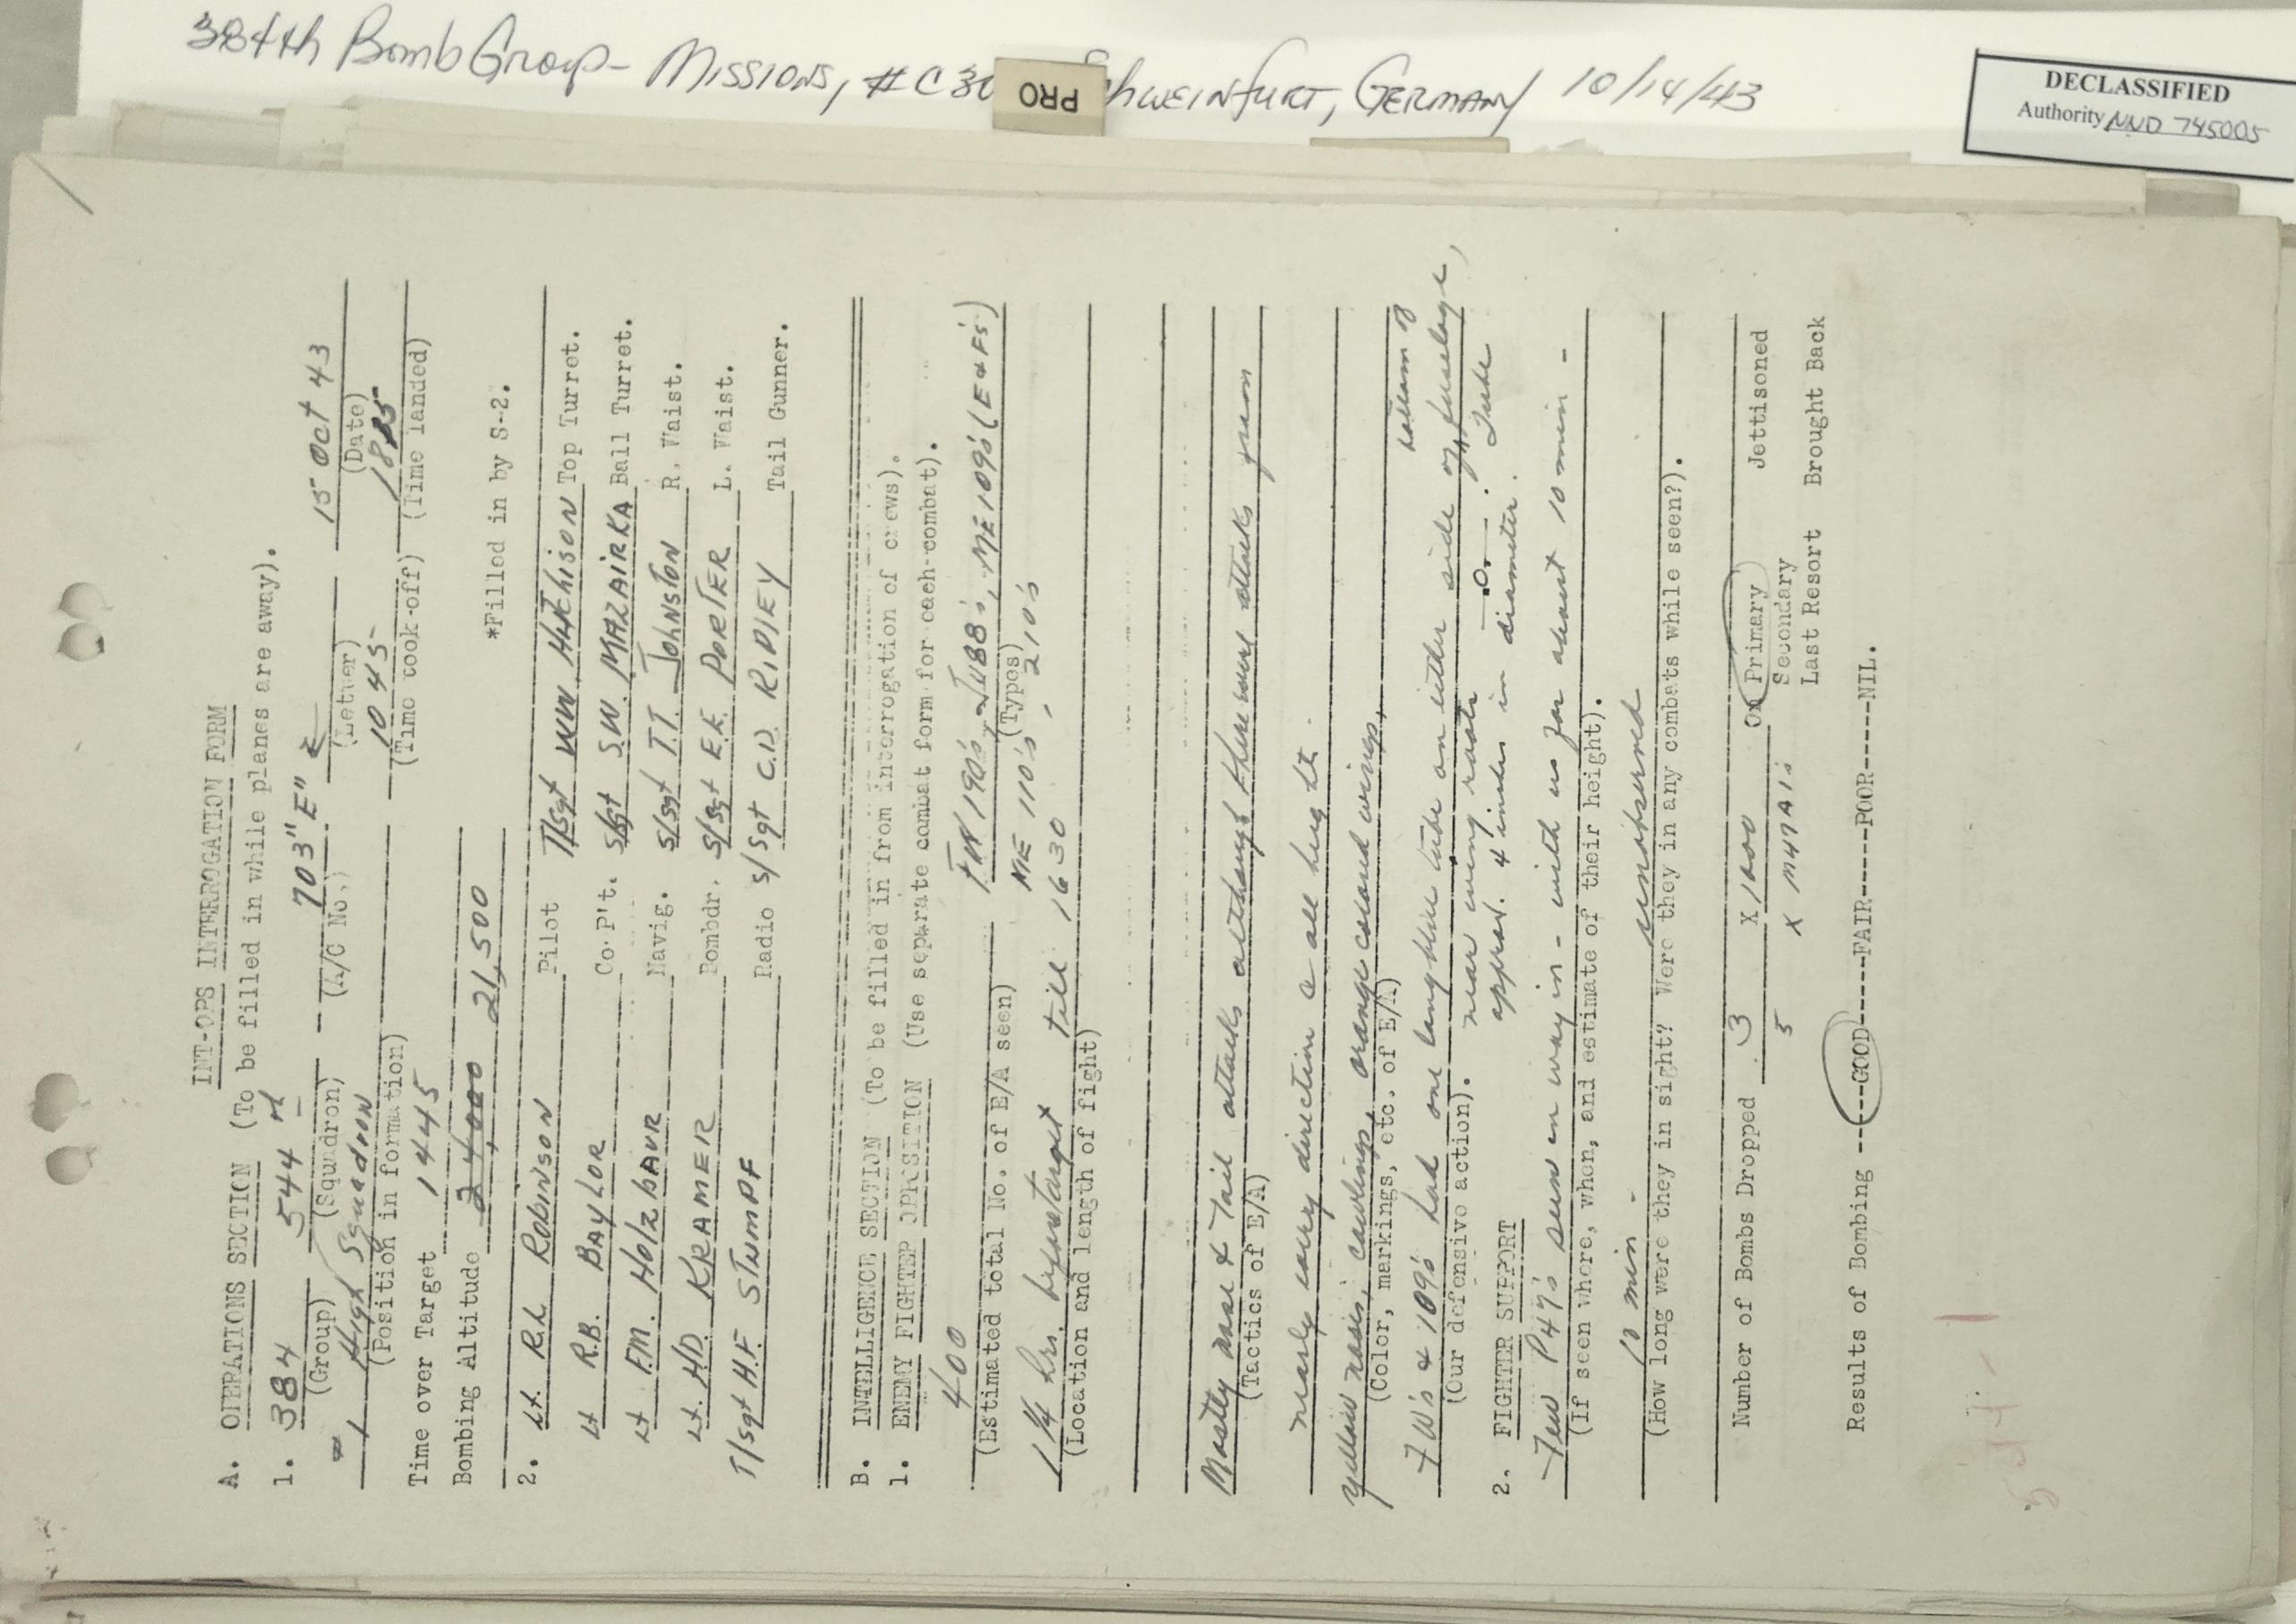 384th Bomb Group - Missions, #C30 chweinfurt, Germany 10/14/43
PRO
DECLASSIFIED
Authority NND 745005
INT-OPS INTERROGATION FORM
A. OPERATIONS SECTION (To be filled in while planes are away).
1. 384 544 703 "E" 15 Oct 43
(Group) (Squadron) (A/C No.) (Letter) (Date)
High Squadron 1045 1825
(Position in formation) (Time took-off) (Time landed)
Time over Target 1445
Bombing Altitude 24,000 21,500 *Filled in by S-2.
2. Lt. R.L. ROBINSON Pilot T/Sgt WW HutchisON Top Turret.
Lt R.B. BAYLOR Co-P't. S/Sgt S.W. MAZAIRKA Ball Turret.
Lt F.M. HolzbAUR Navig. S/Sgt T.T. JOHNSTON R. Waist.
Lt. H.D. KRAMER Bombdr. S/Sgt E.E. PORTER L. Waist.
T/Sgt H.F. STUMPF Radio S/Sgt C.D. RIDLEY Tail Gunner.
B. INTELLIGENCE SECTION (To be filled in from interrogation of crews).
1. ENEMY FIGHTER OPPOSITION (Use separate combat form for each combat).
400 FW 190's, JU88's, ME109's (E & F's)
(Estimated total No. of E/A seen) (Types)
ME 110's, 210's
1 1/4 hrs. before target till 1630
(Location and length of fight)
Mostly nose & tail attacks although there were attacks from
(Tactics of E/A)
nearly every direction @ all height.
yellow noses, cowlings, orange colored wings,
(Color, markings, etc. of E/A)
FW's & 109's had one long blue tube on either side of bottom of fuselage,
(Our defensive action).
near wing roots Tube
approx. 4 inches in diameter.
2. FIGHTER SUPPORT
Few P47's seen on way in - with us for about 10 min -
(If seen where, when, and estimate of their height).
10 min - unobserved
(How long were they in sight? Were they in any combats while seen?).
Number of Bombs Dropped 3 X 1000 On Primary Jettisoned
5 X M47A1's Secondary
Last Resort Brought Back
Results of Bombing ----GOOD-----FAIR-----POOR-----NIL.